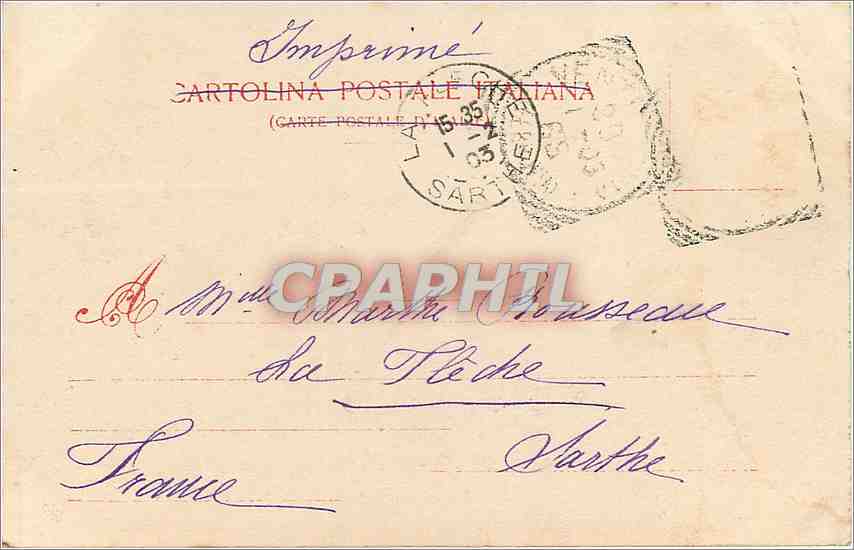 Imprimé
CARTOLINA POSTALE ITALIANA
(CARTE POSTALE D'ITALIE)
LA FLECHE
15 35
1 - 2
03
SARTHE
CPRAPHIL
A Mlle Marthe Rousseau
La Flèche
Sarthe
France